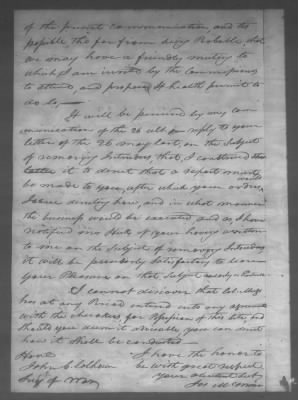 of the present communication, and its
possible tho far from being Probable, that
we may have a friendly meeting to
which I am invited by the Commissioners
to attend, and propose if health permit to
do so,—
It will be perceived by my com
munication of the 26 ult. in reply to your
letter of the 26 may last, on the Subject
of removing Intruders, that I considered the
latter it to direct that a report
be made to you, after which your orders,
I and in what manner
the business would be executed and as I have
notified of your having written
to me on the Subject of removing Intruders
it will be Satisfactory to learn
your Pleasure on that Subject
I cannot discover that Col. Meigs
has at any Period entered into any agreement
with the cherokees, for Possession of this Site, and
should you deem it advisable you can direct
how it shall be conducted—
I have the honor to
Honl. be with great respect
John C. Calhoun your obedient Sert
Secy of War Jos McMinn